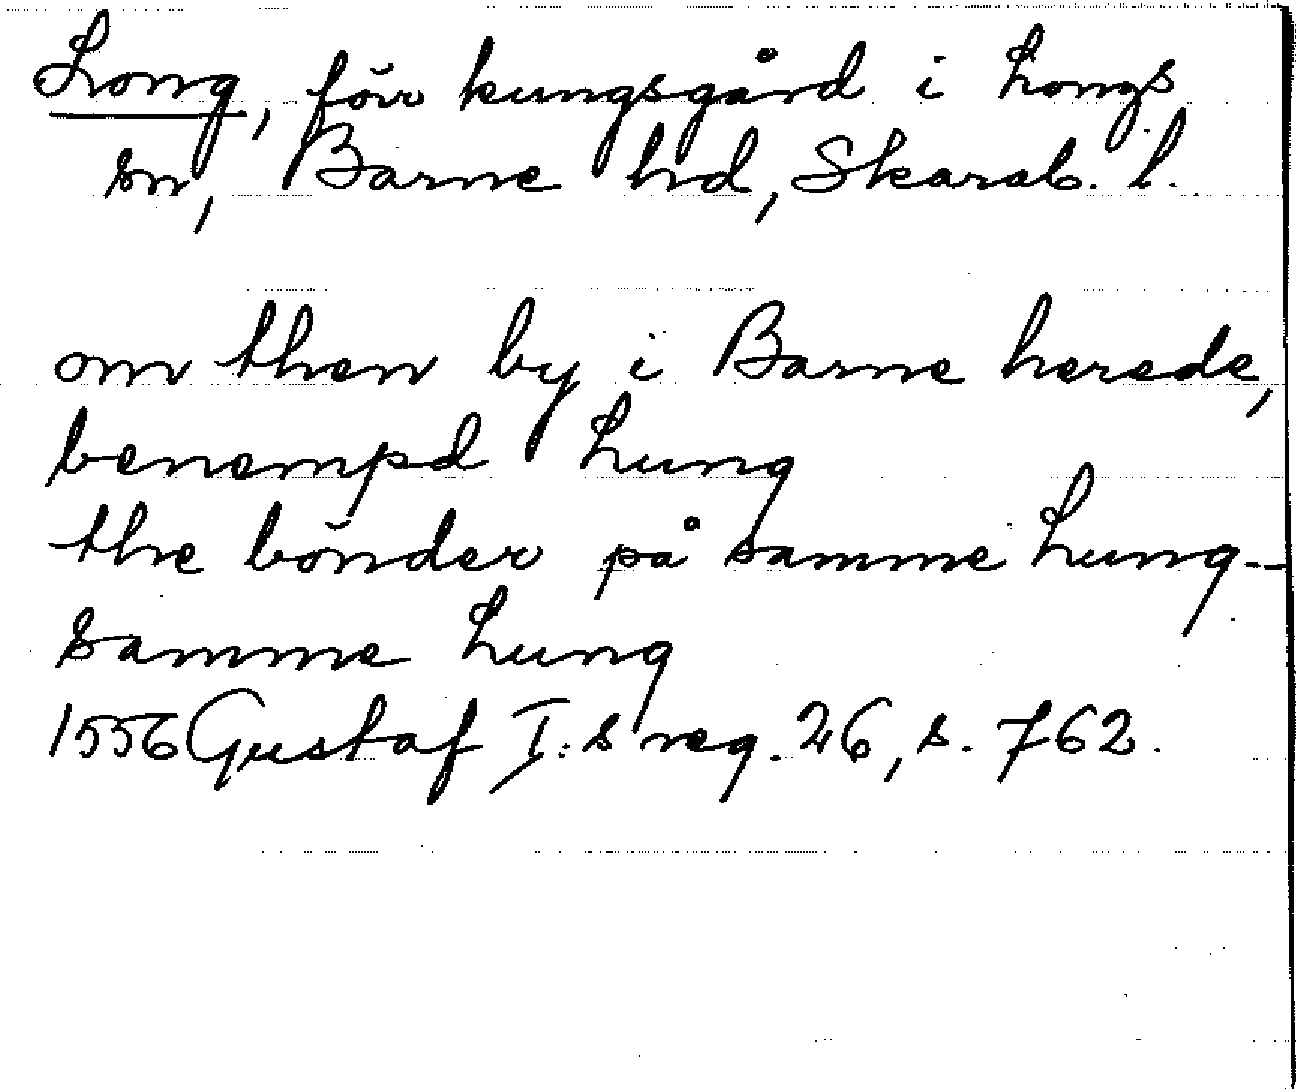 Long, förr kungsgård i Longs
sn, Barne hd, Skarab. l.
om then by i Barne herede,
benempd Lung
the bönder på samme Lung--
samme Lung
1556 Gustaf I:s reg. 26, s. 762.